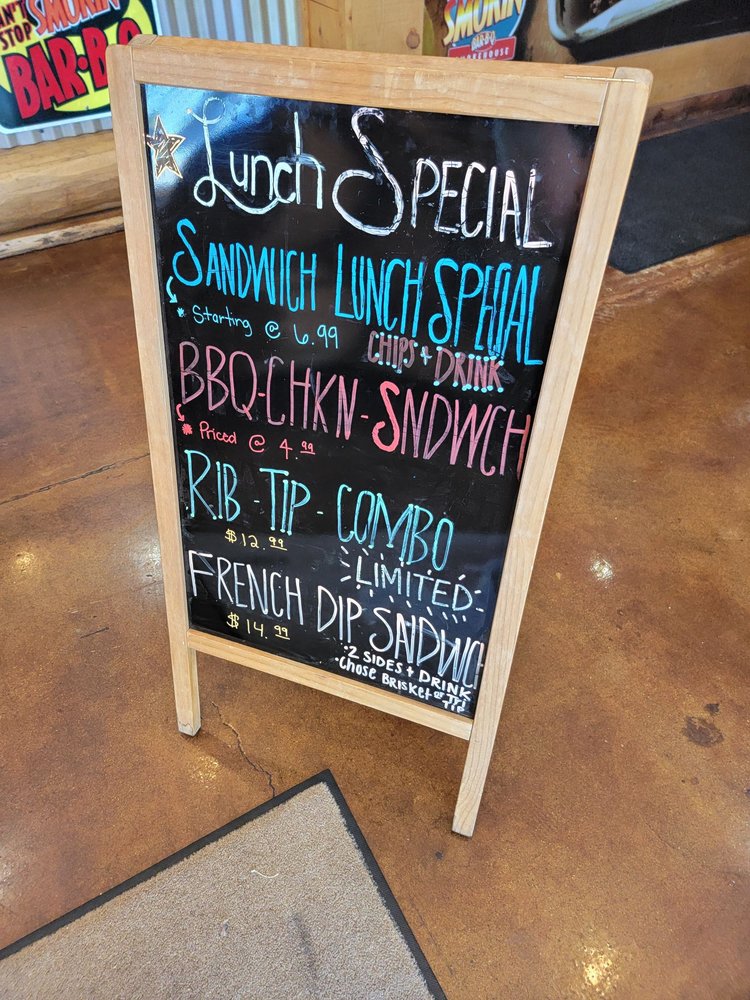 CAN'T
STOP
SMOKIN'
BAR-B-Q
SMOKIN'
BAR-B-Q
Lunch SPECIAL
SANDWICH LUNCH SPECIAL
* Starting @ 6.99
CHIPS + DRINK
BBQ-CHKN-SNDWCH
* Priced @ 4.99
RIB-TIP-COMBO
$12.99
LIMITED
FRENCH DIP SANDWC
$14.99
•2 SIDES + DRINK
•Chose BRISKET or TRI
TIP